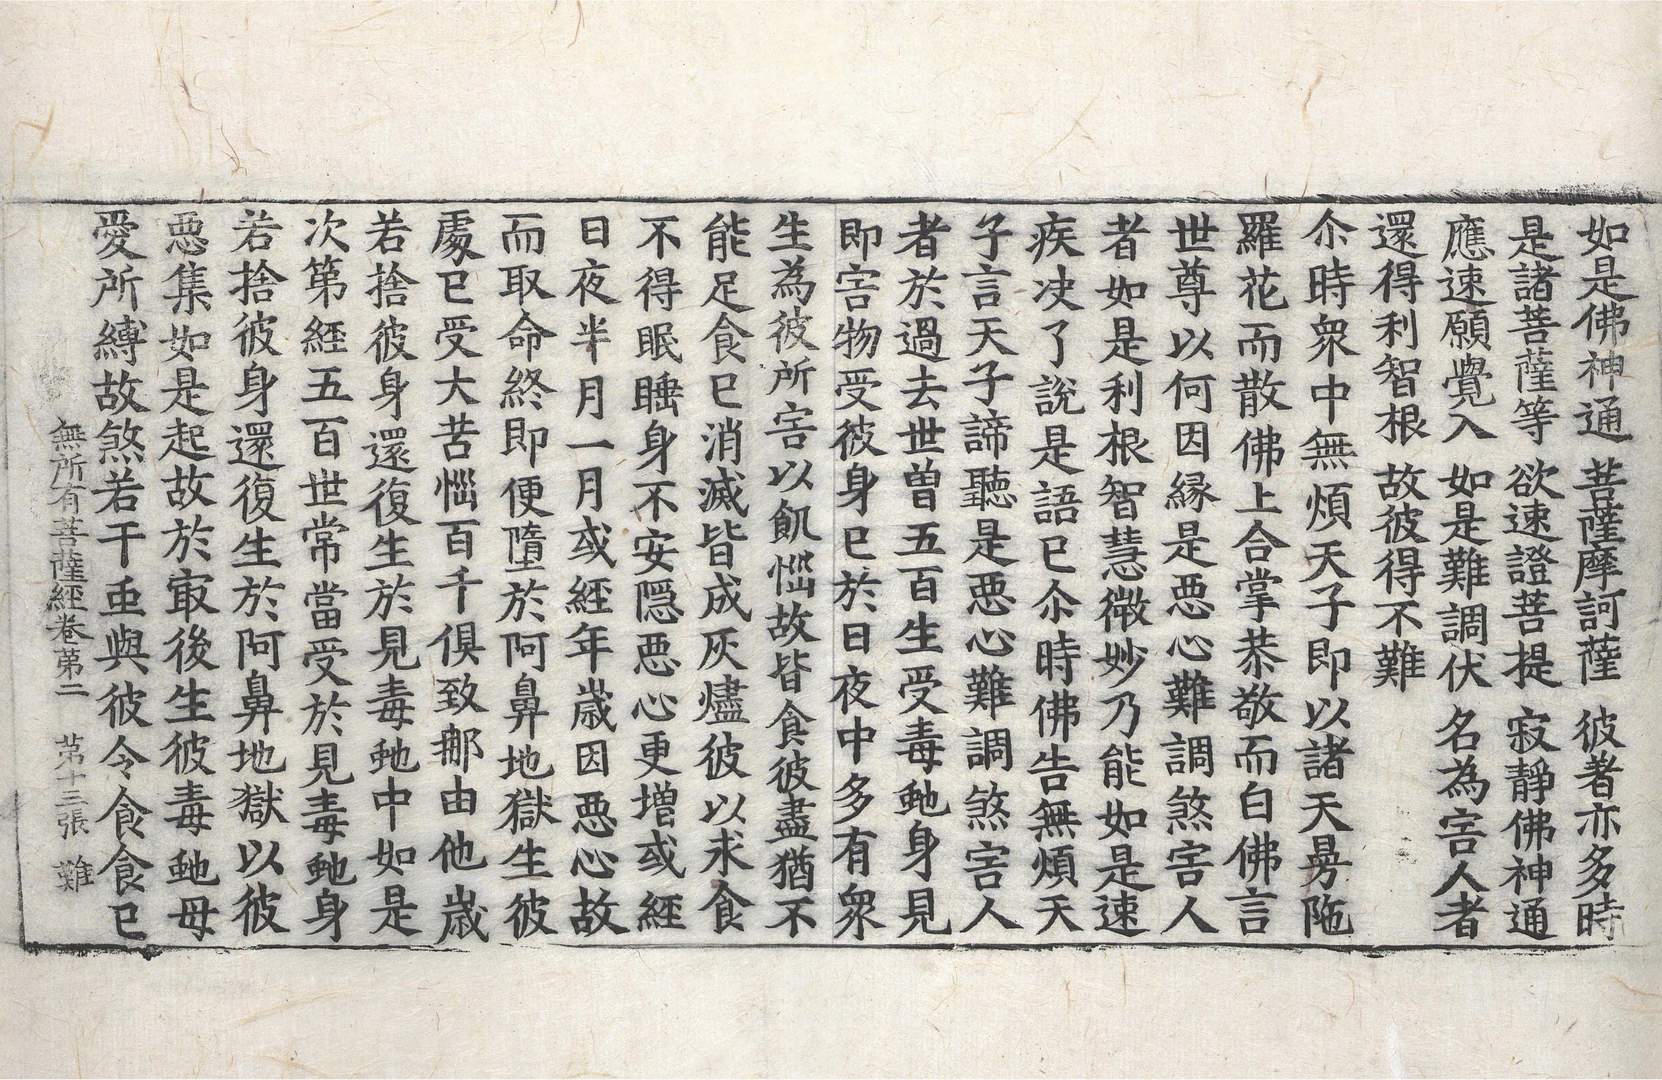 如是佛神通 菩薩摩訶薩 彼者亦多時
是諸菩薩等 欲速證菩提 寂靜佛神通
應速願覺入 如是難調伏 名為害人者
還得利智根 故彼得不難
尒時眾中無煩天子即以諸天曼陁
羅花而散佛上合掌恭敬而白佛言
世尊以何因緣是惡心難調煞害人
者如是利根智慧微妙乃能如是速
疾决了說是語已尒時佛告無煩天
子言天子諦聽是惡心難調煞害人
者於過去世曾五百生受毒虵身見
即害物受彼身已於日夜中多有眾
生為彼所害以飢惱故皆食彼盡猶不
能足食已消滅皆成灰燼彼以求食
不得眠睡身不安隱惡心更增或經
日夜半月一月或經年歲因惡心故
而取命終即便墮於阿鼻地獄生彼
處已受大苦惱百千俱致那由他歲
若捨彼身還復生於見毒虵中如是
次第經五百世常當受於見毒虵身
若捨彼身還復生於阿鼻地獄以彼
惡集如是起故於冣後生彼毒虵母
愛所縛故煞若干䖝與彼令食食已
無所有菩薩經卷第二 第十三張 難